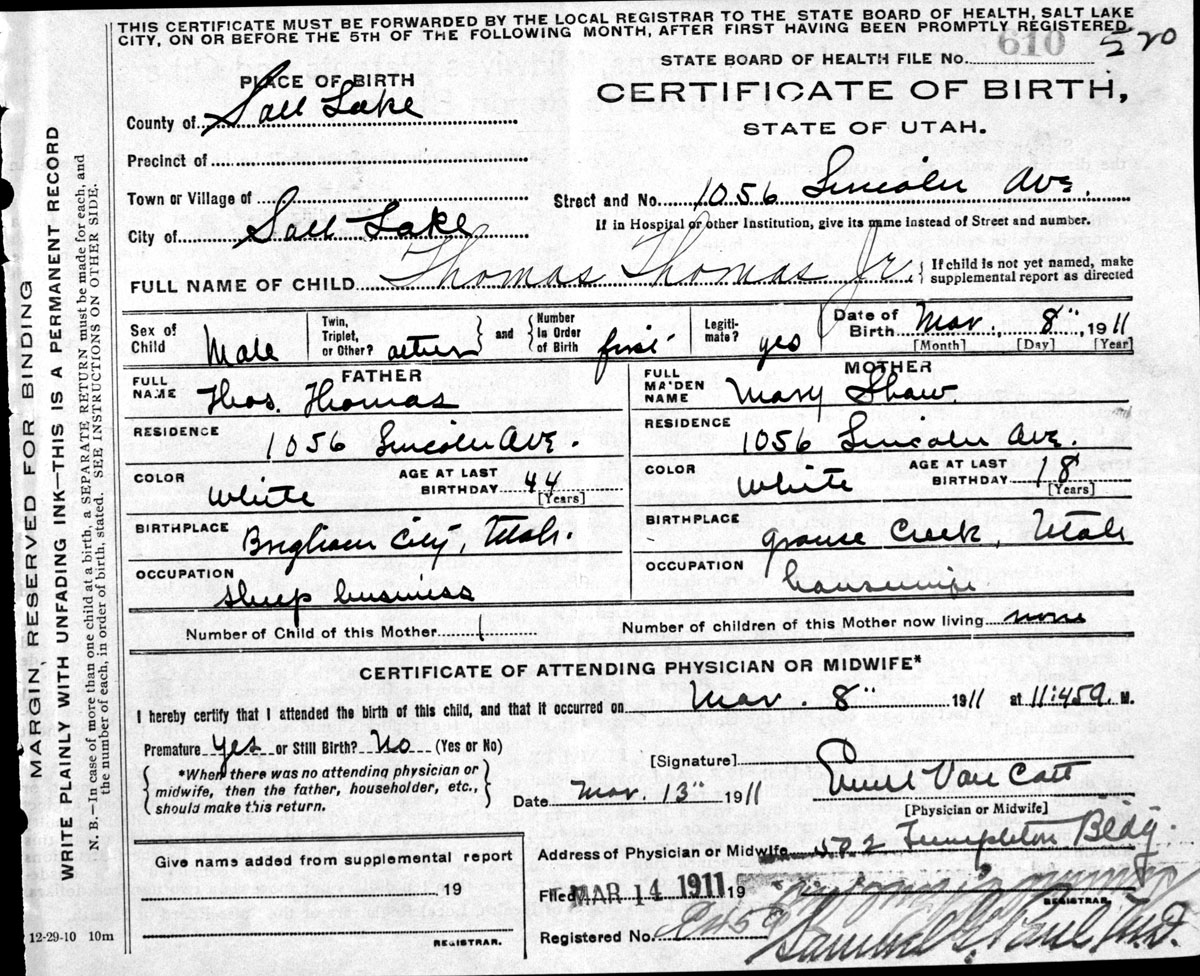 THIS CERTIFICATE MUST BE FORWARDED BY THE LOCAL REGISTRAR TO THE STATE BOARD OF HEALTH, SALT LAKE
CITY, ON OR BEFORE THE 5TH OF THE FOLLOWING MONTH, AFTER FIRST HAVING BEEN PROMPTLY REGISTERED.
610
520
STATE BOARD OF HEALTH FILE No.
PLACE OF BIRTH
CERTIFICATE OF BIRTH,
STATE OF UTAH.
County of Salt Lake
Precinct of
Town or Village of
Street and No. 1056 Lincoln Ave.
City of Salt Lake
If in Hospital or other Institution, give its name instead of Street and number.
FULL NAME OF CHILD Thomas Thomas Jr.
{ If child is not yet named, make
supplemental report as directed
Sex of Child Male
Twin, Triplet, or Other? } and { Number in Order of Birth first
Legiti-mate? yes
Date of Birth Mar. 8" 1911
[Month] [Day] [Year]
FATHER
MOTHER
FULL NAME Thos. Thomas
FULL MAIDEN NAME Mary Shaw.
RESIDENCE 1056 Lincoln Ave.
RESIDENCE 1056 Lincoln Ave.
COLOR White
AGE AT LAST BIRTHDAY 44 [Years]
COLOR White
AGE AT LAST BIRTHDAY 18 [Years]
BIRTHPLACE Brigham City, Utah.
BIRTHPLACE Grouse Creek, Utah
OCCUPATION sheep business
OCCUPATION housewife
Number of Child of this Mother 1
Number of children of this Mother now living none
CERTIFICATE OF ATTENDING PHYSICIAN OR MIDWIFE*
I hereby certify that I attended the birth of this child, and that it occurred on Mar. 8" 1911 at 11:45 M.
Premature Yes or Still Birth? No (Yes or No)
{ *When there was no attending physician or
midwife, then the father, householder, etc.,
should make this return. }
[Signature]
Date Mar. 13" 1911
[Physician or Midwife]
Address of Physician or Midwife 502 Templeton Bldg.
Give name added from supplemental report
19
REGISTRAR.
Filed MAR 14 1911 19
REGISTRAR.
Registered No.
Samuel G. Paul M.D.
12-29-10 10m
MARGIN RESERVED FOR BINDING
WRITE PLAINLY WITH UNFADING INK—THIS IS A PERMANENT RECORD
N. B.—In case of more than one child at a birth, a SEPARATE RETURN must be made for each, and
the number of each, in order of birth, stated. SEE INSTRUCTIONS ON OTHER SIDE.